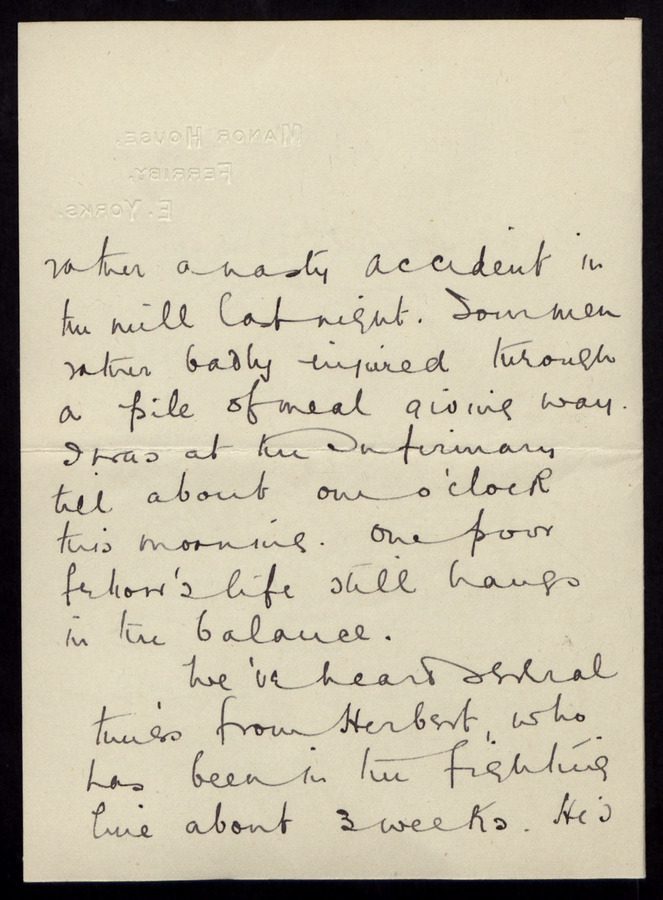 MANOR HOUSE,
FERRIBY,
E. YORKS.
rather a nasty accident in
the mill last night. Four men
rather badly injured through
a pile of meal giving way.
I was at the Infirmary
till about one o'clock
this morning. One poor
fellow's life still hangs
in the balance.
We've heard several
times from Herbert, who
has been in the fighting
line about 3 weeks. He's